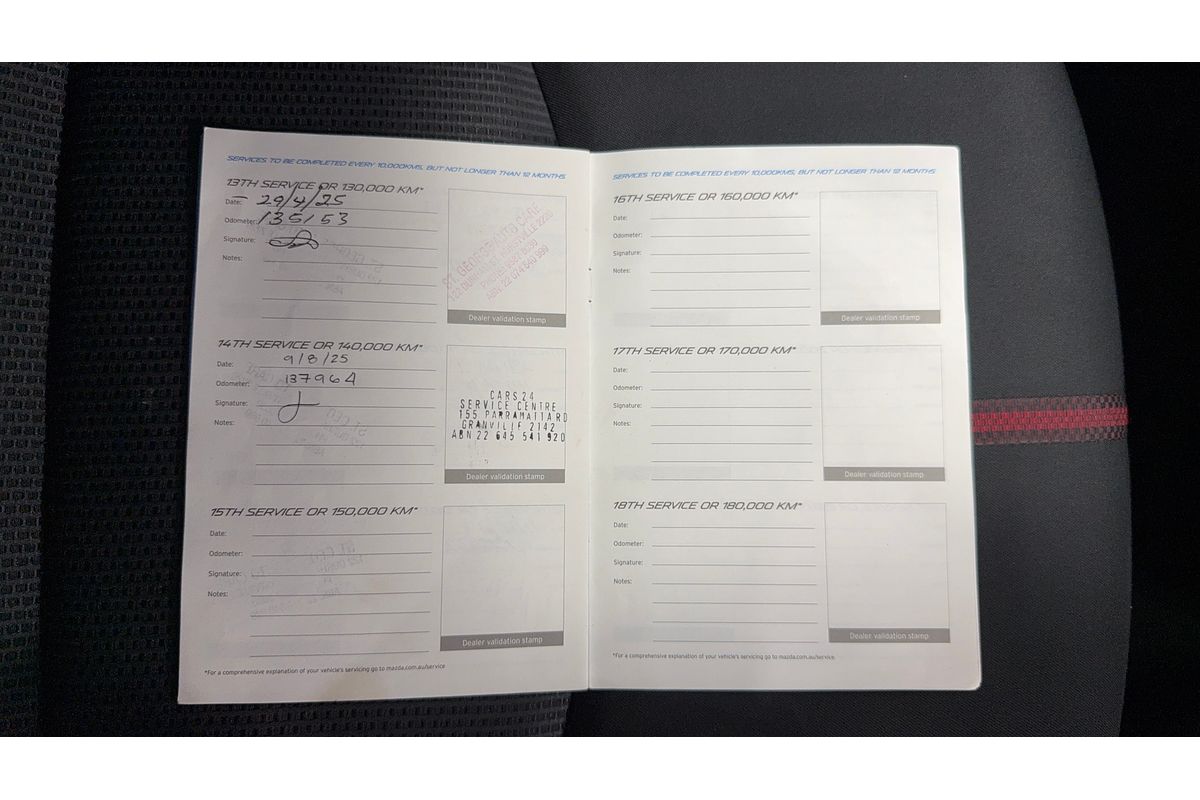 SERVICES TO BE COMPLETED EVERY 10,000KMS, BUT NOT LONGER THAN 12 MONTHS
13TH SERVICE OR 130,000 KM*
Date: 29/4/25
Odometer: 135153
Signature:
Notes:
ST. GEORGE AUTO CARE
ABN 22 074 540 999
Dealer validation stamp
14TH SERVICE OR 140,000 KM*
Date: 9/8/25
Odometer: 137964
Signature:
Notes:
CARS24
SERVICE CENTRE
155 PARRAMATTARD
GRANVILLE 2142
ABN 22 645 541 920
Dealer validation stamp
15TH SERVICE OR 150,000 KM*
Date:
Odometer:
Signature:
Notes:
Dealer validation stamp
*For a comprehensive explanation of your vehicle's servicing go to mazda.com.au/service
SERVICES TO BE COMPLETED EVERY 10,000KMS, BUT NOT LONGER THAN 12 MONTHS
16TH SERVICE OR 160,000 KM*
Date:
Odometer:
Signature:
Notes:
Dealer validation stamp
17TH SERVICE OR 170,000 KM*
Date:
Odometer:
Signature:
Notes:
Dealer validation stamp
18TH SERVICE OR 180,000 KM*
Date:
Odometer:
Signature:
Notes:
Dealer validation stamp
*For a comprehensive explanation of your vehicle's servicing go to mazda.com.au/service